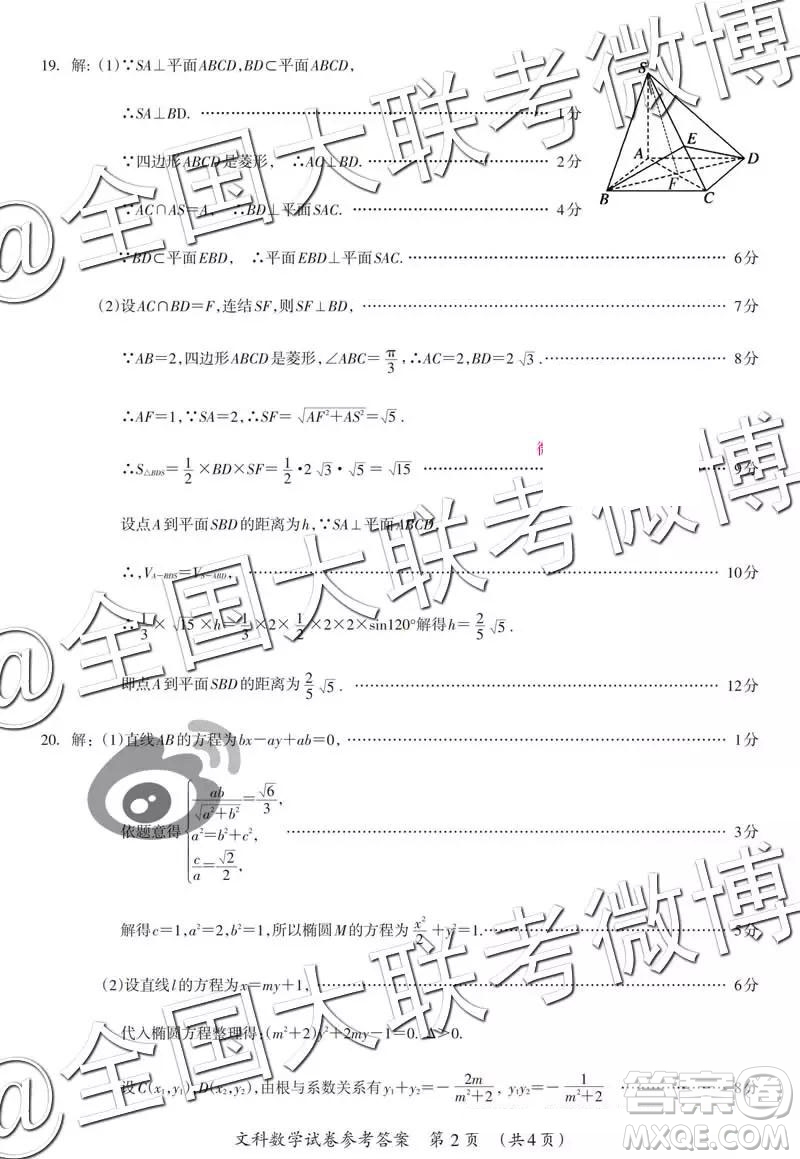 19. 解: (1)∵SA⊥平面ABCD,BD⊂平面ABCD,
∴SA⊥BD. 1分
∵四边形ABCD是菱形, ∴AC⊥BD. 2分
∵AC∩AS=A, ∴BD⊥平面SAC. 4分
∵BD⊂平面EBD, ∴平面EBD⊥平面SAC. 6分
S
E
A
D
F
B
C
(2)设AC∩BD=F,连结SF,则SF⊥BD, 7分
∵AB=2,四边形ABCD是菱形,∠ABC=π/3,∴AC=2,BD=2√3. 8分
∴AF=1,∵SA=2,∴SF=√(AF²+AS²)=√5.
∴S△BDS=1/2×BD×SF=1/2•2√3•√5=√15 9分
设点A到平面SBD的距离为h,∵SA⊥平面ABCD
∴,V_{A-BDS}=V_{S-ABD}, 10分
∴1/3×√15×h=1/3×2×1/2×2×2×sin120°解得h=2/5√5.
即点A到平面SBD的距离为2/5√5. 12分
20. 解: (1)直线AB的方程为bx-ay+ab=0, 1分
依题意得{ab/√(a²+b²)=√6/3,
a²=b²+c², 3分
c/a=√2/2,
解得c=1,a²=2,b²=1,所以椭圆M的方程为x²/2+y²=1. 5分
(2)设直线l的方程为x=my+1, 6分
代入椭圆方程整理得:(m²+2)y²+2my-1=0. Δ>0.
设C(x₁,y₁),D(x₂,y₂),由根与系数关系有y₁+y₂=-2m/(m²+2), y₁y₂=-1/(m²+2) 8分
文科数学试卷参考答案 第2页 (共4页)
@全国大联考微博
@全国大联考微博
@全国大联考微博
答案圈
MXQE.COM